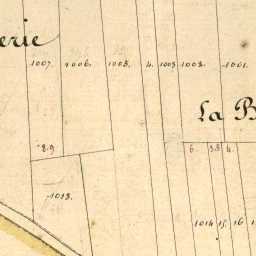 erie
1007. 1006. 1005. 4. 1003 1002. 1001.
La B
8.9 6. 3.8 4.
1013.
1014 15. 16.